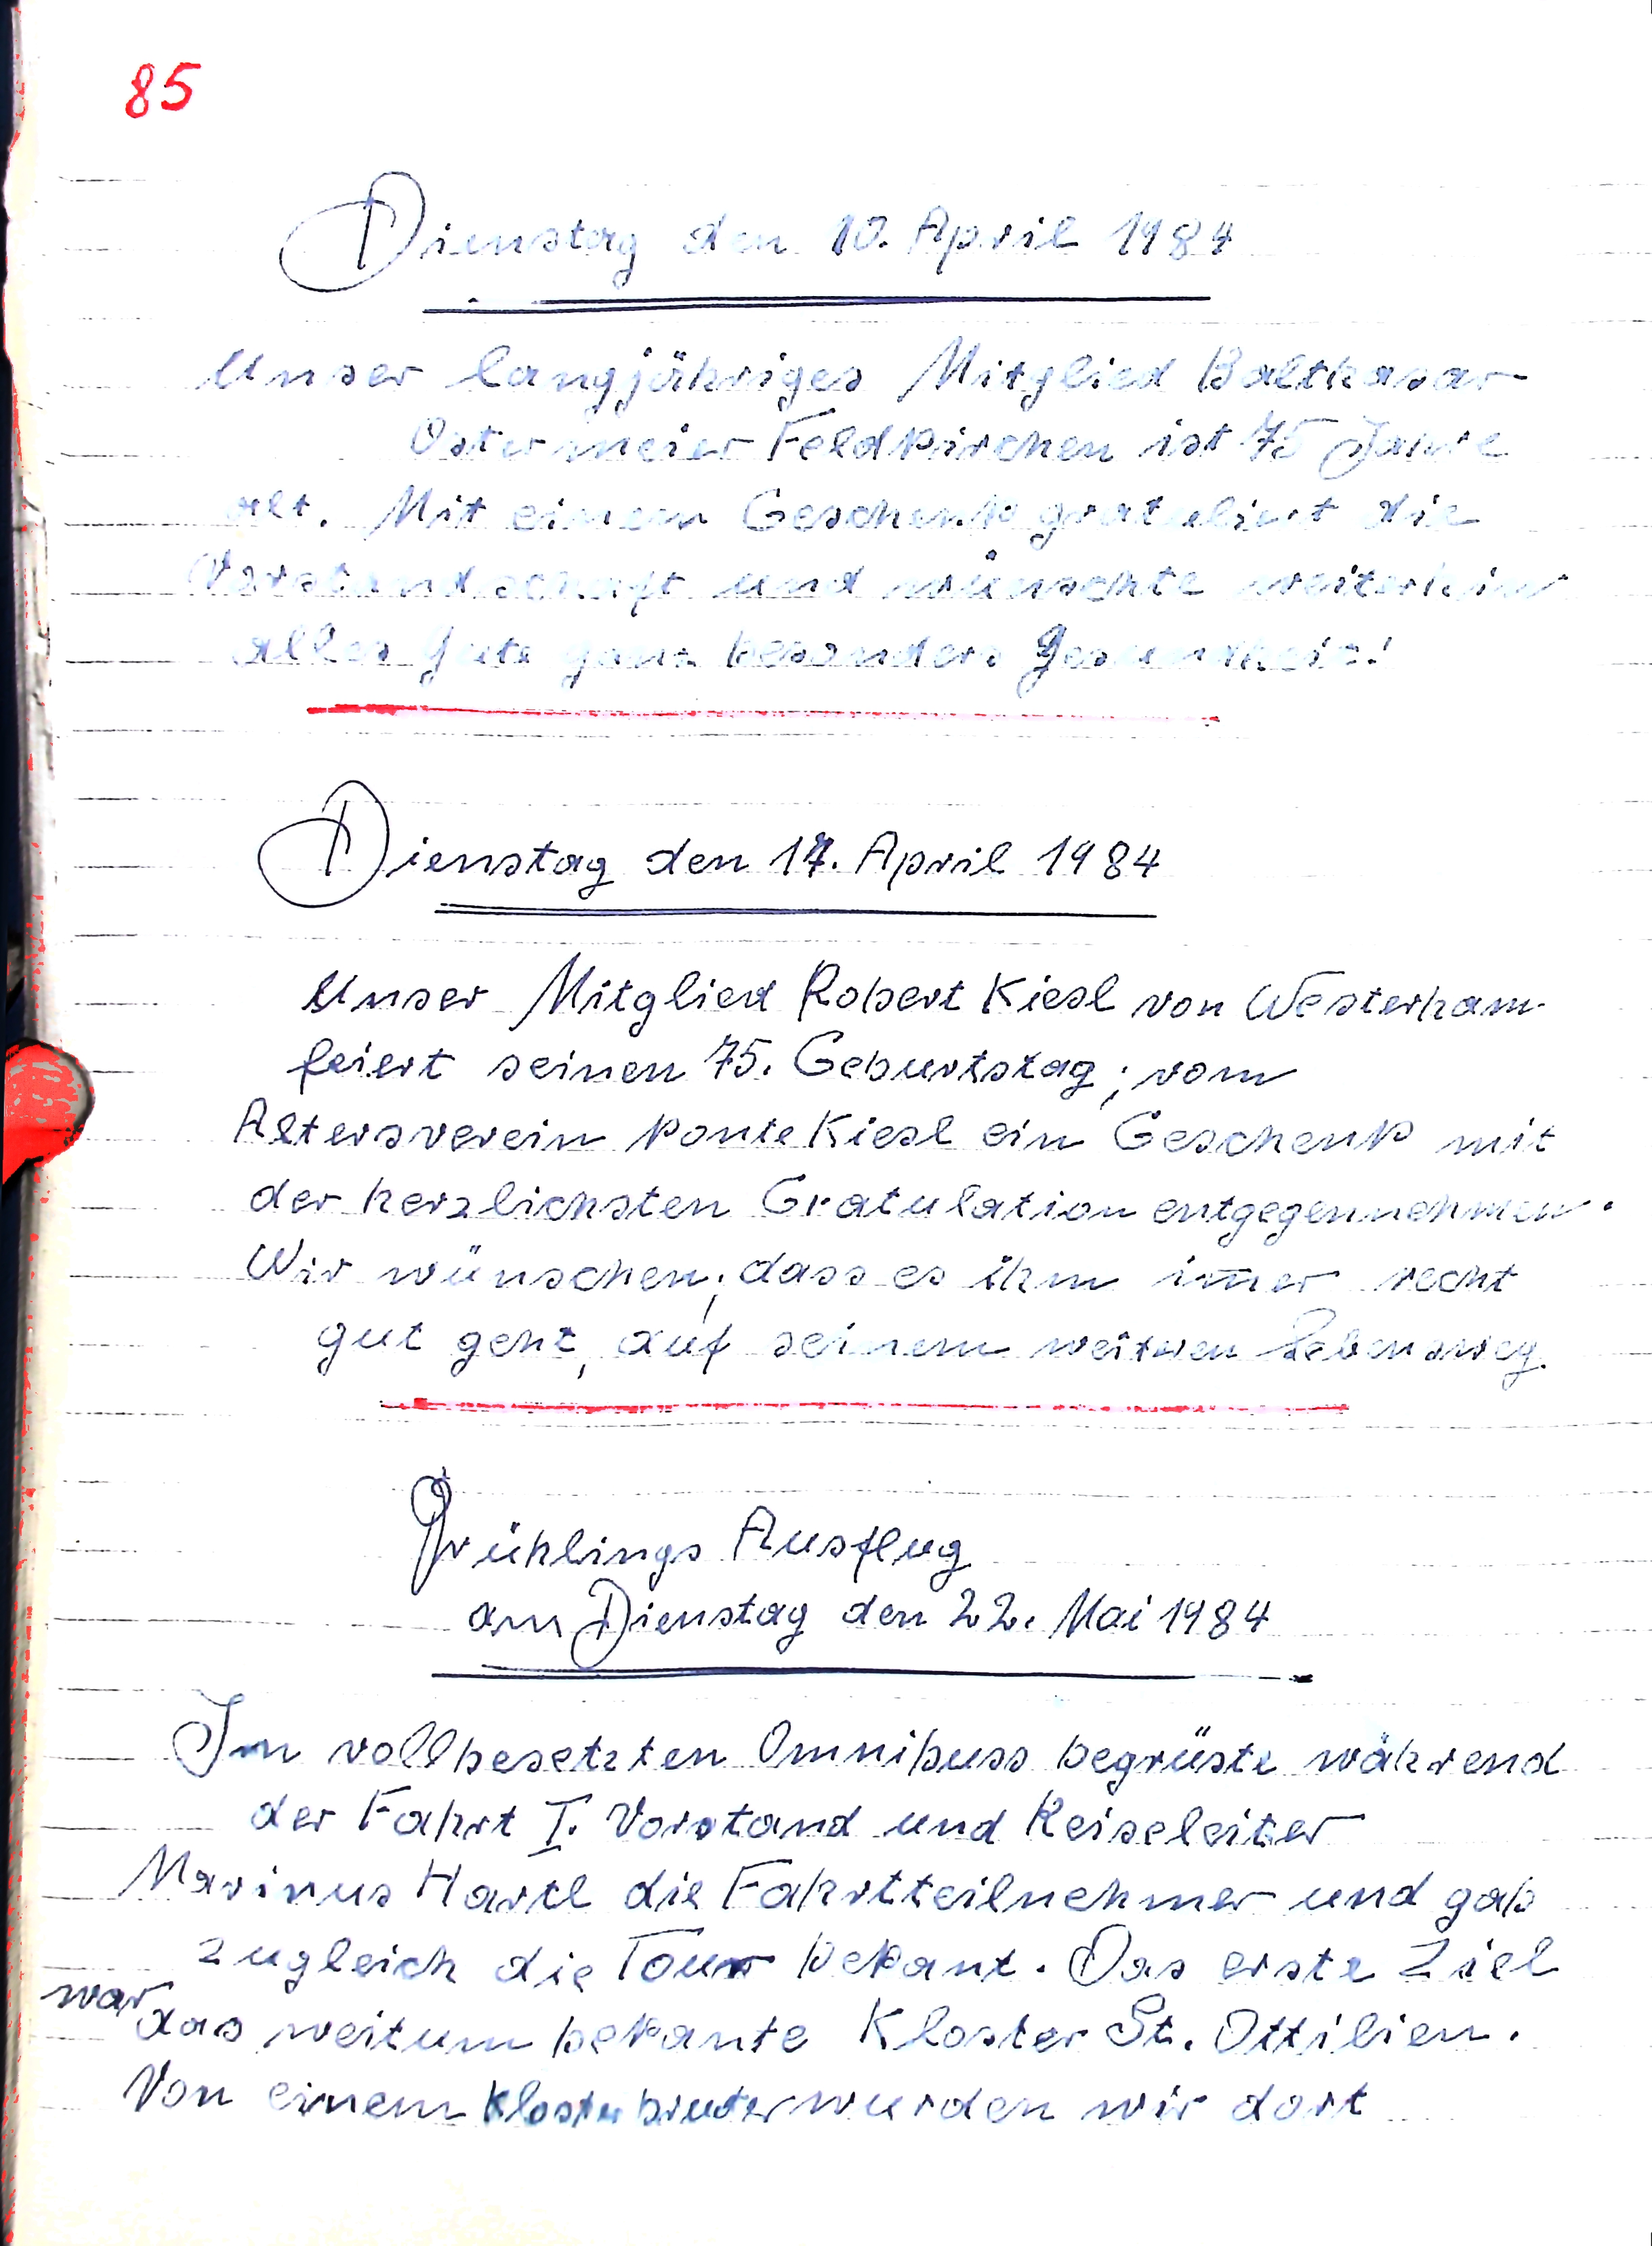 85
Dienstag den 10. April 1984
Unser langjähriges Mitglied Balthasar
Ostermeier Feldkirchen ist 75 Jahre
alt. Mit einem Geschenk gratuliert die
Vorstandschaft und wünschte weiterhin
alles Gute ganz besonders Gesundheit!
Dienstag den 17. April 1984
Unser Mitglied Robert Kiesl von Westerham
feiert seinen 75. Geburtstag, vom
Altersverein konte Kiesl ein Geschenk mit
der herzlichsten Gratulation entgegennehmen.
Wir wünschen, dass es ihm im̅er recht
gut geht, auf seinem weiteren Lebensweg.
Frühlings Ausflug
am Dienstag den 22. Mai 1984
Im vollbesetzten Omnibuss begrüste während
der Fahrt I. Vorstand und Reiseleiter
Marinus Hartl die Fahrtteilnehmer und gab
zugleich die Tour bekant. Das erste Ziel
war das weitum bekante Kloster St. Ottilien.
Von einem Klosterbruder wurden wir dort